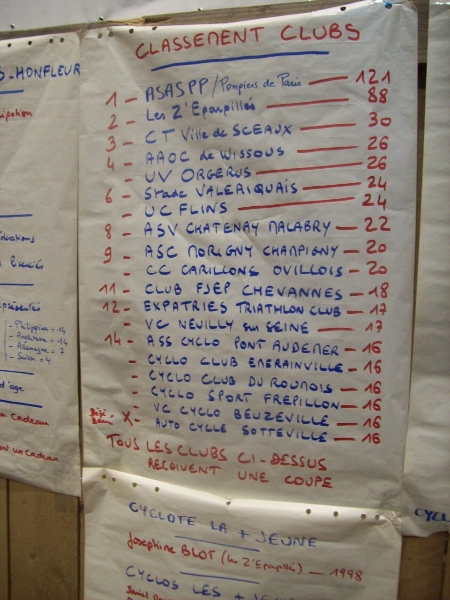 CLASSEMENT CLUBS
1 - ASASPP/Pompiers de Paris — 121
2 - Les Z'Eparpillés — 88
3 - CT Ville de SCEAUX — 30
4 - AAOC de WISSOUS — 26
- UV ORGERUS — 26
6 - Stade VALERIQUAIS — 24
- UC FLINS — 24
8 - ASV CHATENAY MALABRY — 22
9 - ASC MORIGNY CHAMPIGNY — 20
- CC CARILLONS OVILLOIS — 20
11 - CLUB FJEP CHEVANNES — 18
12 - EXPATRIES TRIATHLON CLUB — 17
- VC NEUILLY sur SEINE — 17
14 - ASS CYCLO PONT AUDEMER — 16
- CYCLO CLUB EMERAINVILLE — 16
- CYCLO CLUB DU ROUMOIS — 16
- CYCLO SPORT FREPILLON — 16
X - VC CYCLO BEUZEVILLE — 16
- AUTO CYCLE SOTTEVILLE — 16
TOUS LES CLUBS CI-DESSUS
RECOIVENT UNE COUPE
CYCLOTE LA + JEUNE
Josephine BLOT (Les Z'Eparpillés) — 1998
CYCLOS LES + JEUNE
- HONFLEUR
- Philippin = 14
- Allemagne = 7
- Suisse = 4
d'age
un Cadeau
un cadeau
CYCL